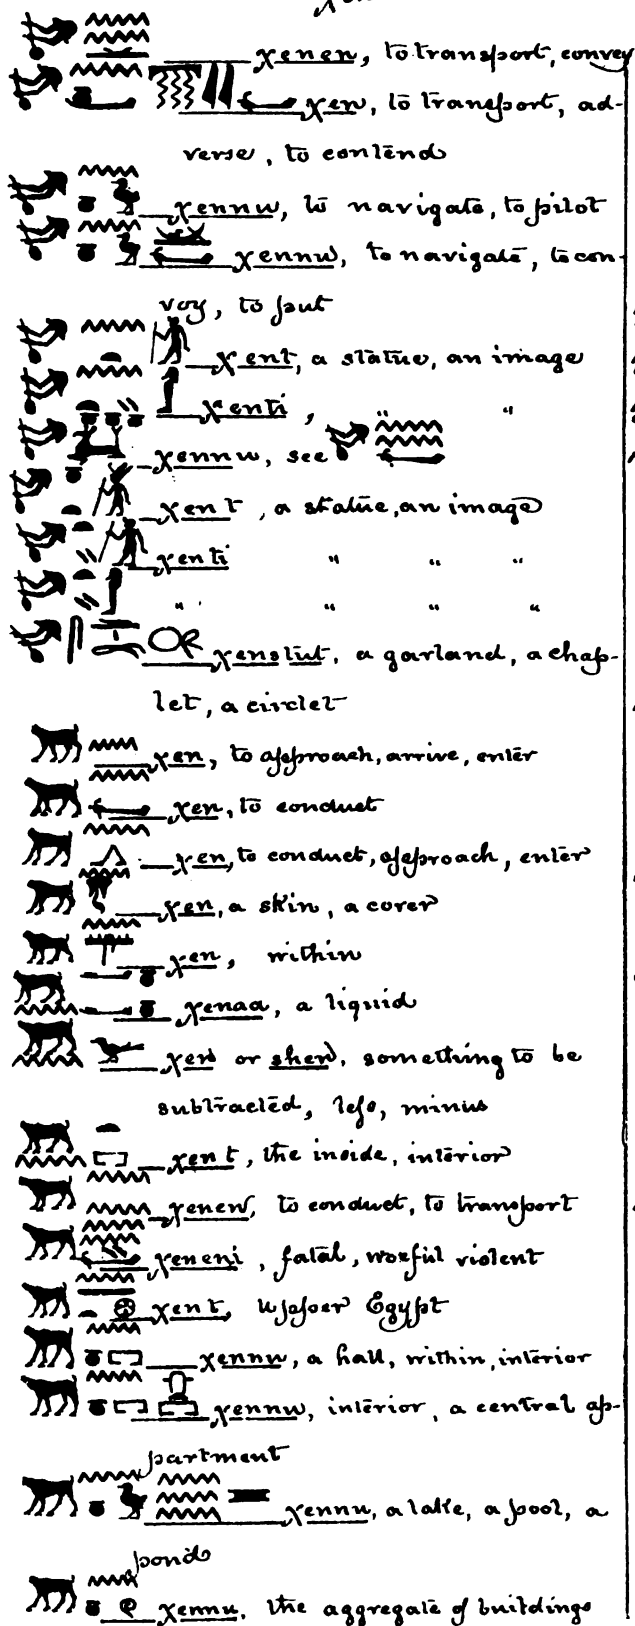 χenen, to transport, convey
χen, to transport, ad-
verse, to contend
χennu, to navigate, to pilot
χennu, to navigate, to con-
voy, to put
χent, a statue, an image
χenti, " "
χennu, see
χent, a statue, an image
χenti " " "
" " " "
χenstut, a garland, a chap-
let, a circlet
χen, to approach, arrive, enter
χen, to conduct
χen, to conduct, approach, enter
χen, a skin, a cover
χen, within
χenaa, a liquid
χen or shen, something to be
subtracted, less, minus
χent, the inside, interior
χenen, to conduct, to transport
χeneni, fatal, woeful violent
χent, Upper Egypt
χennu, a hall, within, interior
χennu, interior, a central ap-
partment
χennu, a lake, a pool, a
pond
χennu, the aggregate of buildings